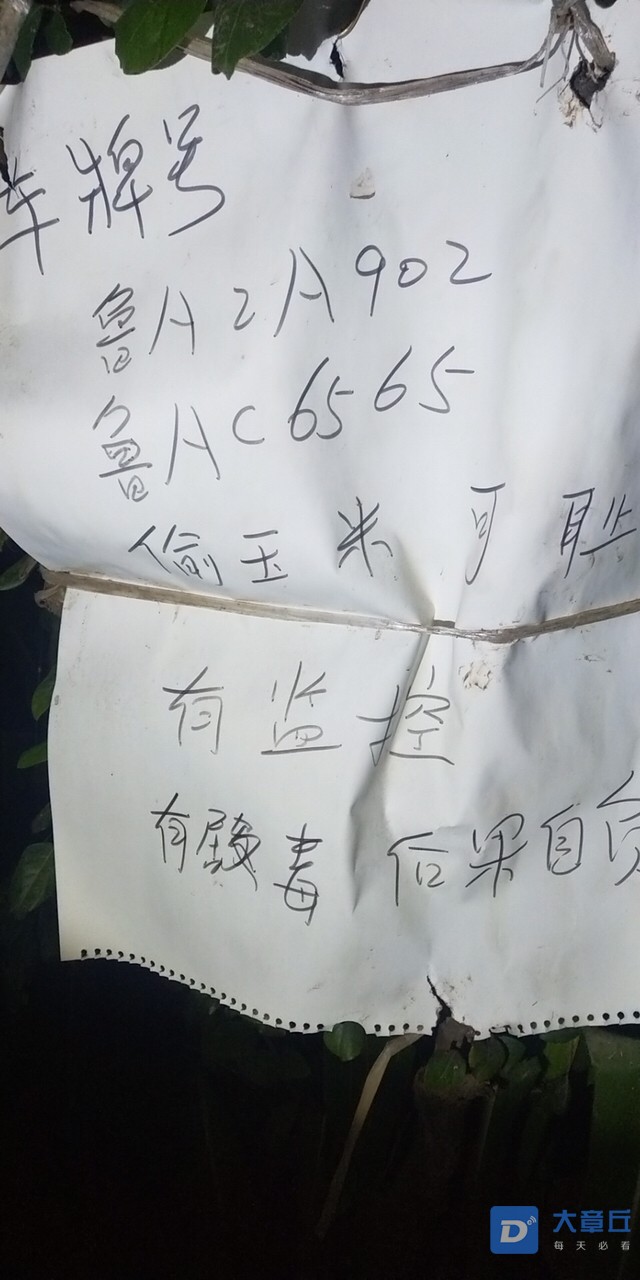 车牌号
鲁A2A902
鲁AC6565
偷玉米可耻
有监控
有毒 后果自负
大章丘
每天必看